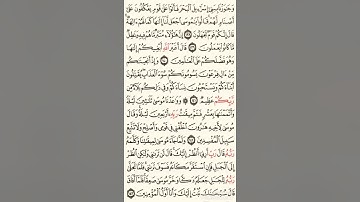 وَجَٰوَزۡنَا بِبَنِيٓ إِسۡرَٰٓءِيلَ ٱلۡبَحۡرَ فَأَتَوۡاْ عَلَىٰ قَوۡمٖ يَعۡكُفُونَ عَلَىٰٓ
أَصۡنَامٖ لَّهُمۡۚ قَالُواْ يَٰمُوسَى ٱجۡعَل لَّنَآ إِلَٰهٗا كَمَا لَهُمۡ ءَالِهَةٞۚ
قَالَ إِنَّكُمۡ قَوۡمٞ تَجۡهَلُونَ ١٣٨ إِنَّ هَٰٓؤُلَآءِ مُتَبَّرٞ مَّا هُمۡ فِيهِ وَبَٰطِلٞ
مَّا كَانُواْ يَعۡمَلُونَ ١٣٩ قَالَ أَغَيۡرَ ٱللَّهِ أَبۡغِيكُمۡ إِلَٰهٗا
وَهُوَ فَضَّلَكُمۡ عَلَى ٱلۡعَٰلَمِينَ ١٤٠ وَإِذۡ أَنجَيۡنَٰكُم
مِّنۡ ءَالِ فِرۡعَوۡنَ يَسُومُونَكُمۡ سُوٓءَ ٱلۡعَذَابِ يُقَتِّلُونَ
أَبۡنَآءَكُمۡ وَيَسۡتَحۡيُونَ نِسَآءَكُمۡۚ وَفِي ذَٰلِكُم بَلَآءٞ مِّن
رَّبِّكُمۡ عَظِيمٞ ١٤١ ۞ وَوَٰعَدۡنَا مُوسَىٰ ثَلَٰثِينَ لَيۡلَةٗ
وَأَتۡمَمۡنَٰهَا بِعَشۡرٖ فَتَمَّ مِيقَٰتُ رَبِّهِۦٓ أَرۡبَعِينَ لَيۡلَةٗۚ وَقَالَ
مُوسَىٰ لِأَخِيهِ هَٰرُونَ ٱخۡلُفۡنِي فِي قَوۡمِي وَأَصۡلِحۡ وَلَا تَتَّبِعۡ
سَبِيلَ ٱلۡمُفۡسِدِينَ ١٤٢ وَلَمَّا جَآءَ مُوسَىٰ لِمِيقَٰتِنَا وَكَلَّمَهُۥ
رَبُّهُۥ قَالَ رَبِّ أَرِنِيٓ أَنظُرۡ إِلَيۡكَۚ قَالَ لَن تَرَىٰنِي وَلَٰكِنِ ٱنظُرۡ
إِلَى ٱلۡجَبَلِ فَإِنِ ٱسۡتَقَرَّ مَكَانَهُۥ فَسَوۡفَ تَرَىٰنِيۚ فَلَمَّا تَجَلَّىٰ
رَبُّهُۥ لِلۡجَبَلِ جَعَلَهُۥ دَكّٗا وَخَرَّ مُوسَىٰ صَعِقٗاۚ فَلَمَّآ أَفَاقَ
قَالَ سُبۡحَٰنَكَ تُبۡتُ إِلَيۡكَ وَأَنَا۠ أَوَّلُ ٱلۡمُؤۡمِنِينَ ١٤٣